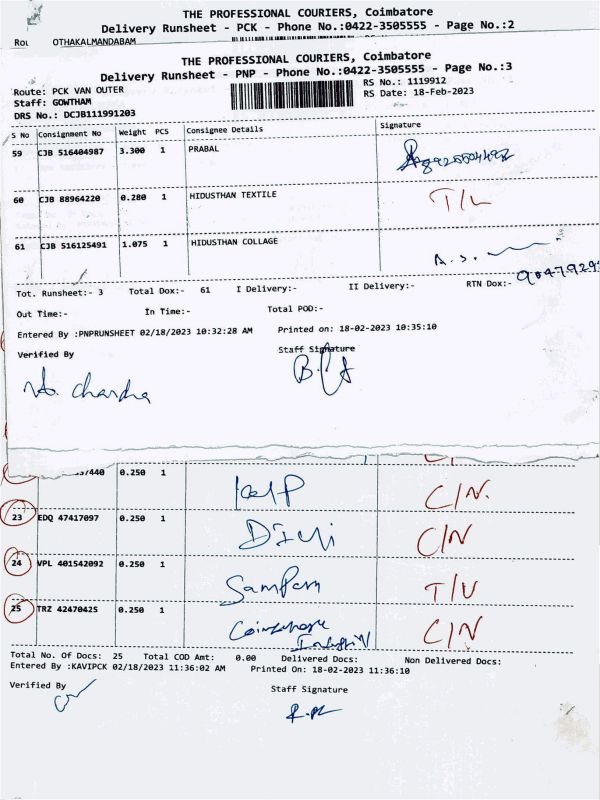 THE PROFESSIONAL COURIERS, Coimbatore
Delivery Runsheet - PCK - Phone No.:0422-3505555 - Page No.:2
OTHAKALMANDABAM
THE PROFESSIONAL COURIERS, Coimbatore
Delivery Runsheet - PNP - Phone No.:0422-3505555 - Page No.:3
Route: PCK VAN OUTER RS No.: 1119912
Staff: GOWTHAM RS Date: 18-Feb-2023
DRS No.: DCJB111991203
S No Consignment No Weight PCS Consignee Details Signature
59 CJB 516404987 3.300 1 PRABAL
60 CJB 88964220 0.280 1 HIDUSTHAN TEXTILE T/L
61 CJB 516125491 1.075 1 HIDUSTHAN COLLAGE A.S.
Tot. Runsheet:- 3 Total Dox:- 61 I Delivery:- II Delivery:- RTN Dox:-
Out Time:- In Time:- Total POD:-
Entered By :PNPRUNSHEET 02/18/2023 10:32:28 AM Printed on: 18-02-2023 10:35:10
Verified By Staff Signature
7440 0.250 1 C/N.
23 EDQ 47417097 0.250 1 C/N
24 VPL 401542092 0.250 1 T/U
25 TRZ 42470425 0.250 1 C/N
Total No. Of Docs: 25 Total COD Amt: 0.00 Delivered Docs: Non Delivered Docs:
Entered By :KAVIPCK 02/18/2023 11:36:02 AM Printed On: 18-02-2023 11:36:10
Verified By Staff Signature